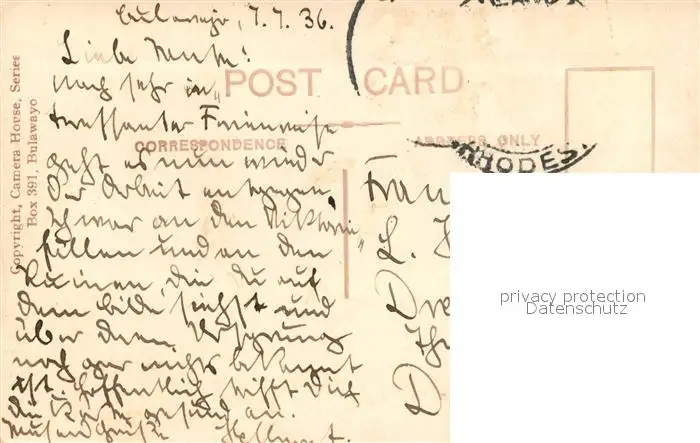 Bulawayo, 7.7.36.
Liebe Mutter!
Nach sehr in
teressanter Ferienreise
geht es nun wieder
der Arbeit entgegen.
Ich war an den Viktoria
fällen und an den
Ruinen, die du auf
dem Bilde siehst und
über deren Ursprung
noch gar nichts bekannt
ist. Hoffentlich trifft Dich
die Karte gesund an.
Tausend Grüße Hellmut.
POST CARD
CORRESPONDENCE
ADDRESS ONLY
Copyright, Camera House, Series
Box 391, Bulawayo
RHODES.
Frau
L. H
Dre
D
privacy protection
Datenschutz